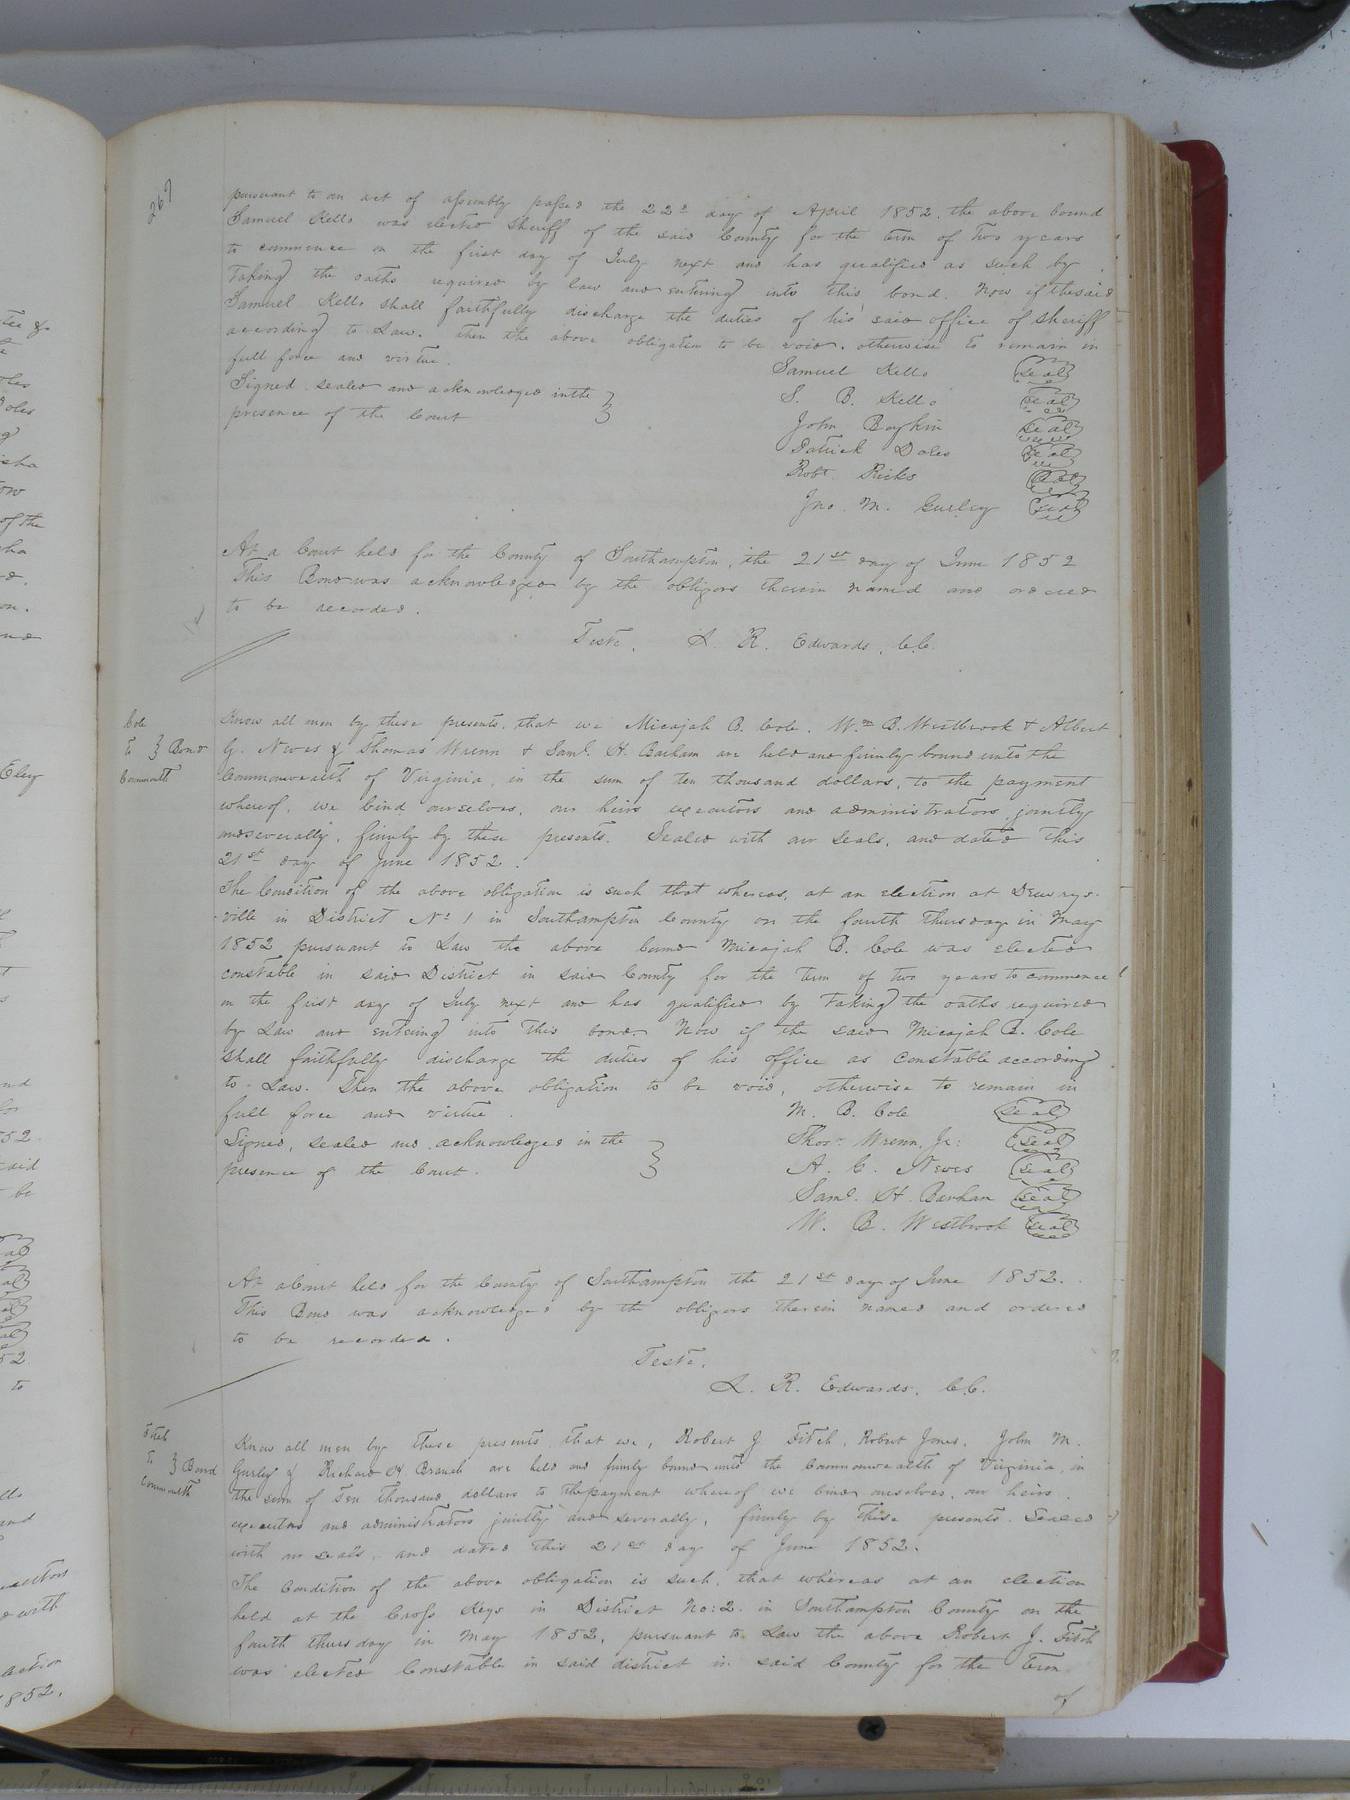 267
pursuant to an act of assembly passed the 22d day of April 1852. the above bound
Samuel Kello was elected Sheriff of the said County for the term of two years
to commence on the first day of July next and has qualified as such by
Taking the oaths required by law and entering into this bond. Now if the said
Samuel Kello shall faithfully discharge the duties of his said office of Sheriff
according to Law. then the above obligation to be void. otherwise to remain in
full force and virtue.
Samuel Kello (Seal)
Signed sealed and acknowledged in the
presence of the Court
S. B. Kello (Seal)
John Boykin (Seal)
Patrick Doles (Seal)
Robt. Ricks (Seal)
Jno. M. Gurley (Seal)
At a Court held for the County of Southampton, the 21st day of June 1852
This Bond was acknowledged by the obligors therein named and ordered
to be recorded.
Teste, L. R. Edwards, C.C.
Cole
to } Bond
Commonth
Know all men by these presents, that we Micajah B. Cole. Wm B. Westbrook & Albert
G. News & Thomas Wrenn & Saml. H. Barham are held and firmly bound unto the
Commonwealth of Virginia, in the sum of ten thousand dollars, to the payment
whereof, we bind ourselves, our heirs executors and administrators jointly
and severally, firmly by these presents. Sealed with our seals, and dated this
21st day of June 1852.
The Condition of the above obligation is such that whereas, at an election at Drewrys-
ville in District No 1 in Southampton County on the fourth Thursday in May
1852 pursuant to Law the above bound Micajah B. Cole was elected
constable in said District in said County for the term of two years to commence
on the first day of July next and has qualified by Taking the oaths required
by Law and entering into this bond. Now if the said Micajah B. Cole
shall faithfully discharge the duties of his office as constable according
to Law. Then the above obligation to be void, otherwise to remain in
full force and virtue.
M. B. Cole (Seal)
Signed, sealed and acknowledged in the
presence of the Court.
Thos. Wrenn, Jr: (Seal)
A. G. News (Seal)
Saml. H. Barham (Seal)
W. B. Westbrook (Seal)
At a Court held for the County of Southampton the 21st day of June 1852.
This Bond was acknowledged by the obligors therein named and ordered
to be recorded.
Teste,
L. R. Edwards, C.C.
Fitch
to } Bond
Commonth
Know all men by these presents that we, Robert J. Fitch, Robert Jones, John M.
Gurley & Richard H Branch are held and firmly bound unto the Commonwealth of Virginia, in
the sum of Ten thousand dollars to the payment whereof we bind ourselves, our heirs,
executors and administrators jointly and severally, firmly by these presents. Sealed
with our seals, and dated this 21st day of June 1852.
The Condition of the above obligation is such, that whereas at an election
held at the Cross Keys in District No: 2. in Southampton County on the
fourth thursday in May 1852, pursuant to Law the above Robert J. Fitch
was elected Constable in said district in said County for the term
of